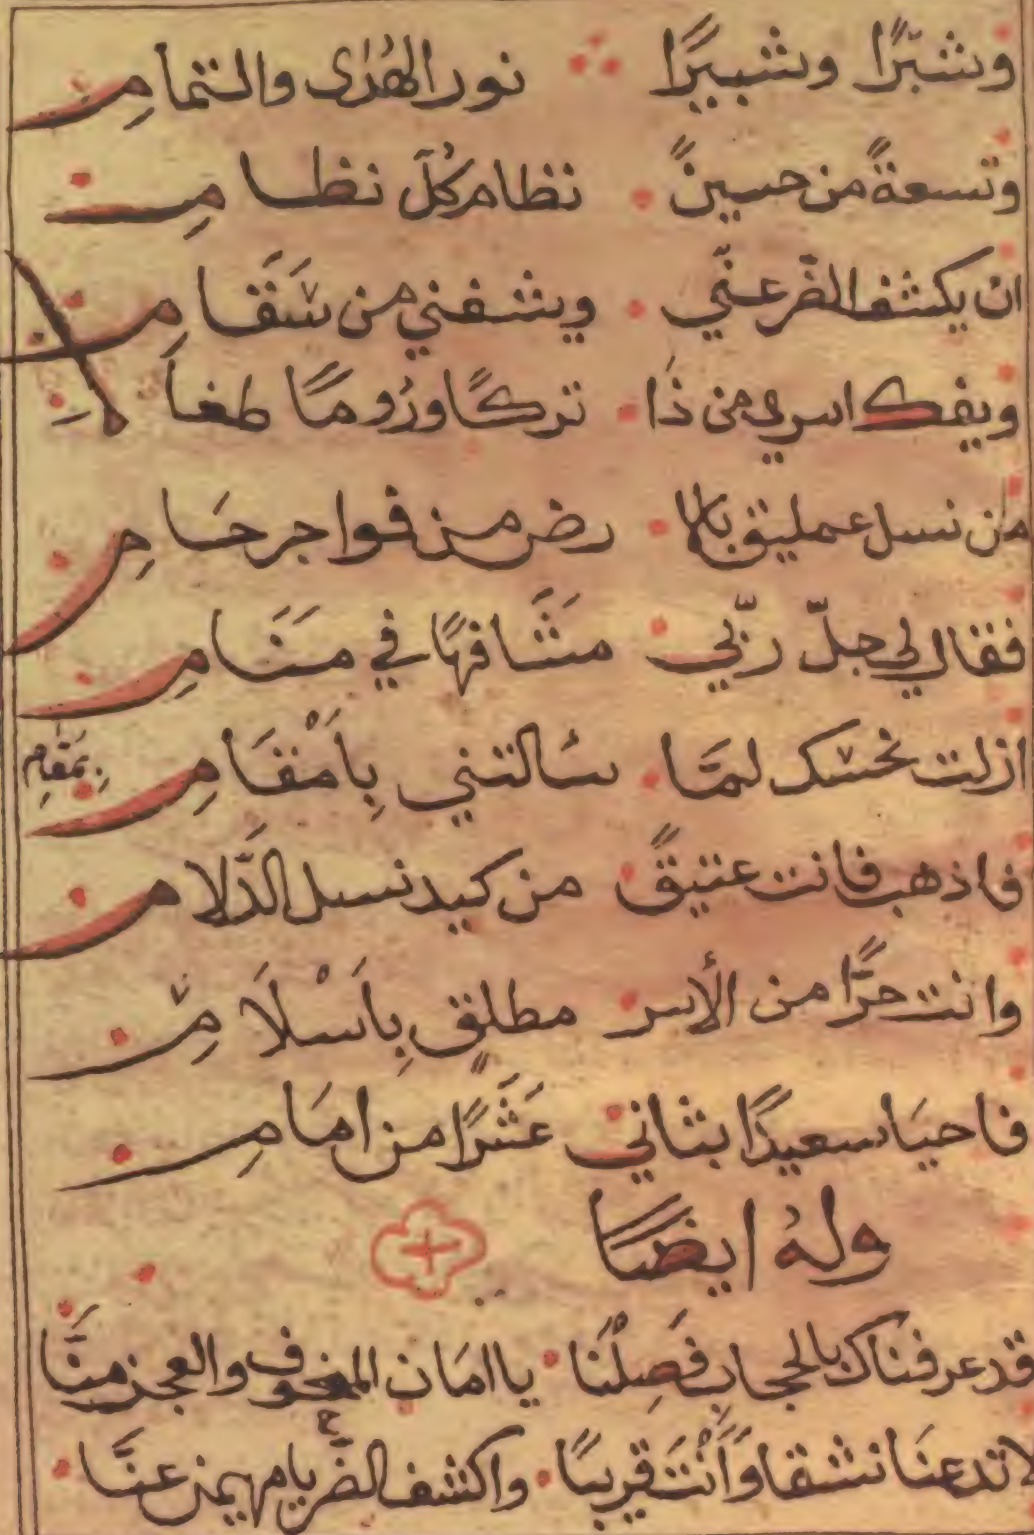 وشبّرًا وشبيرًا ∴ نور الهُدٰى والتمامِ
وتسعةً من حسينً • نظام كُلّ نظامِ
ان يكشف الضّر عنّي • ويشفني من سَقَامِ
ويفك اسري من ذَا • تركًا ورُومًا طغاَ
من نسل عمليق بالا • رض من فواجر حَامِ
فقال لي جلّ ربّي • مَشَافهًا في مَنَامِ
ازلت نحسك لمّا • سُالتني بِاَمْقَامِ بمَقامِ
فاذهب فانت عتيقً • من كيد نسل الدَّلامِ
وانت حرًّا من الأسر • مطلقٍ بِاَسْلَامِ
فاحيَا سعيدًا بثاني • عَشَرًا من امَامِ
ولهُ ايضًا
قد عرفنَاك بالحجاب فَصِلْنَا • يا امَان المخوف والعجز منَّا
لا تدعنَا نشقا وَاَنْتَ قريبًا • واكشف الضّر يا مهيمن عنَّا •